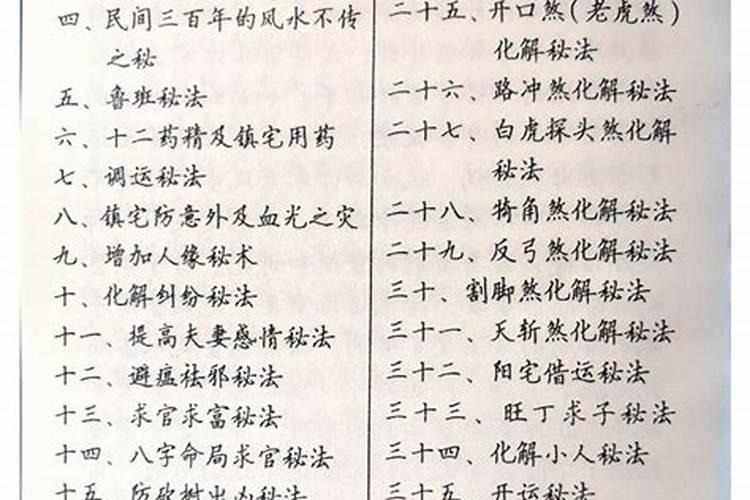 四、民间三百年的风水不传
之秘
五、鲁班秘法
六、十二药精及镇宅用药
七、调运秘法
八、镇宅防意外及血光之灾
九、增加人缘秘术
十、化解纠纷秘法
十一、提高夫妻感情秘法
十二、避瘟祛邪秘法
十三、求官求富秘法
十四、八字命局求官秘法
十五、防砍树出凶秘法
二十五、开口煞(老虎煞)
化解秘法
二十六、路冲煞化解秘法
二十七、白虎探头煞化解
秘法
二十八、犄角煞化解秘法
二十九、反弓煞化解秘法
三十、割脚煞化解秘法
三十一、天斩煞化解秘法
三十二、阳宅借运秘法
三十三、旺丁求子秘法
三十四、化解小人秘法
三十五、开运秘法